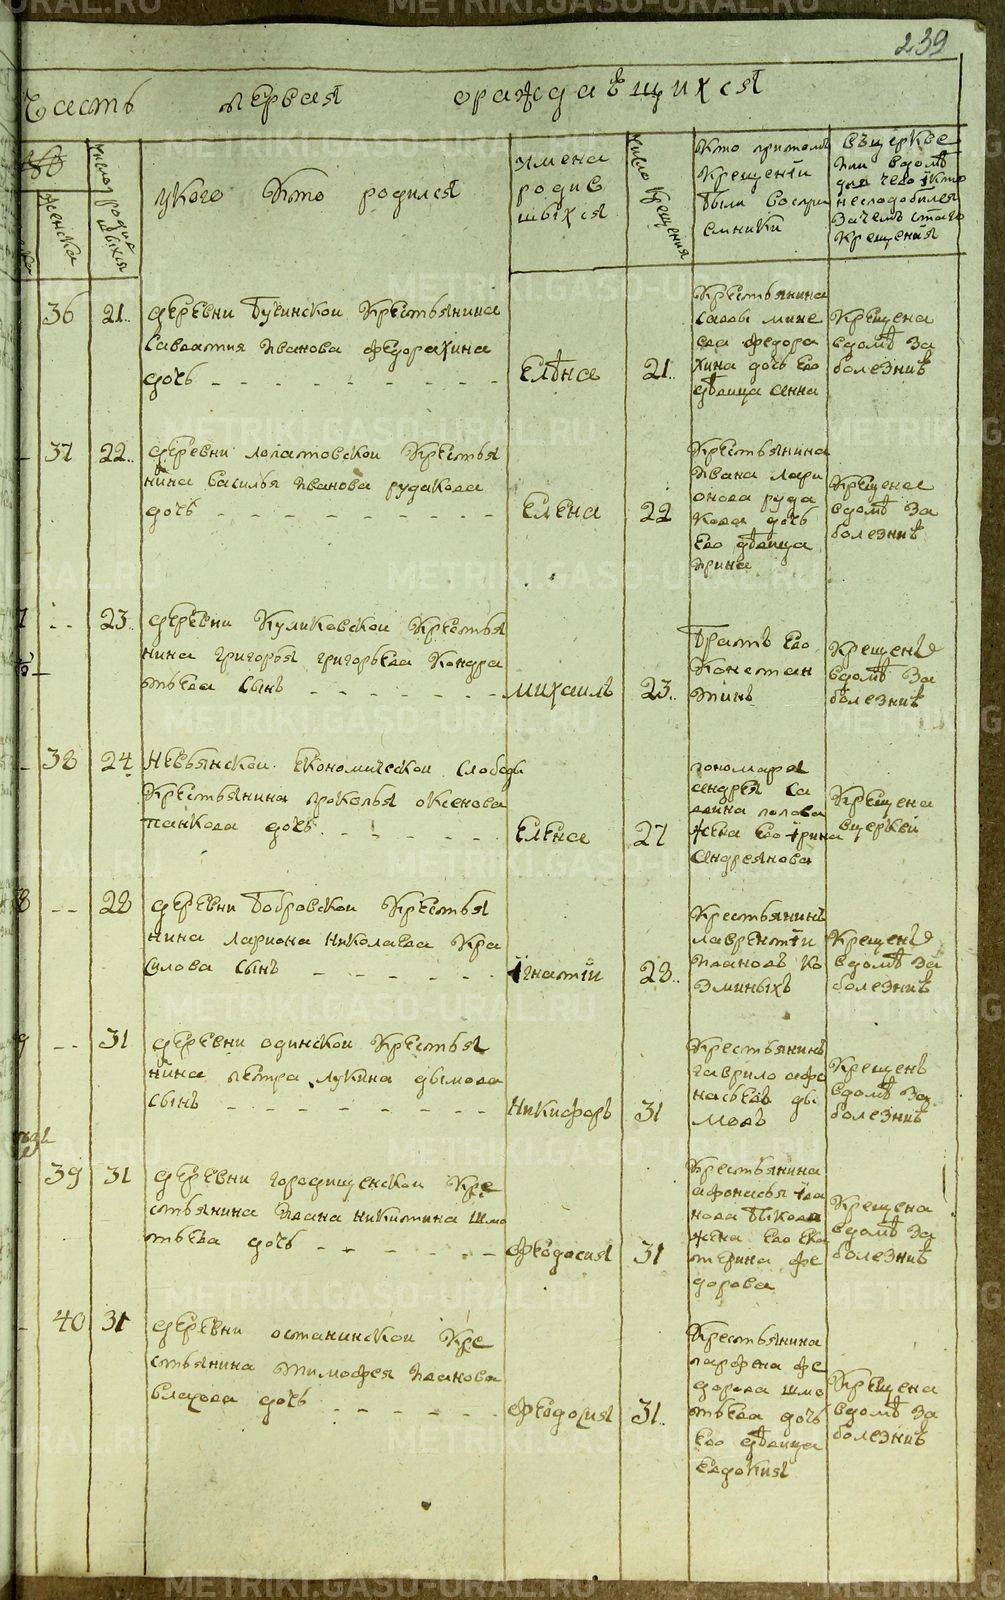 239
Часть первая ораждающихся
Женска
число родившыхся
У кого кто родился
имена
родив
шыхся
число крещения
Кто притомъ
крещенiи
были воспри
емники
въ церкве
или вдомѣ
для чего iкто
несподобился
зачемъ стаго
крещения
36 21
деревни Бучинскои крестьянина
Савватия Иванова Федорахина
дочь
Елѣна
21
крестьянина
Саввы Мине
ева Федора
хина дочь ево
дѣвица Анна
крещена
вдомѣ за
болезниѣ
37 22
деревни Лопатовскои крестья
нина Василья Иванова Рудакова
дочь
Елена
22
крестьянина
Ивана Лари
онова Руда
кова дочь
ево дѣвица
Ирина
крещена
вдомѣ за
болезниѣ
7 -- 23
деревни Куликовскои крестья
нина Григорья Григорьева Кондра
тьева сынъ
Михаилъ
23
Братъ ево
Констан
тинъ
крещенъ
вдомѣ за
болезниѣ
38 24
Невьянскои економическои слободы
крестьянина Прокопья Оксенова
Панкова дочь
Елена
27
пономаря
Андрея Са
ввина Попова
жена ево Iрина
Андреянова
крещена
вщеркви
8 -- 28
деревни Бобровскои крестья
нина Лариона Николаева Кра
силова сынъ
Iгнатiи
28
крестьянинъ
Лаврентiи
Ивановъ Ко
зминыхъ
крещенъ
вдомѣ за
болезниѣ
9 -- 31
деревни Одинскои крестья
нина Петра Лукина Дымова
сынъ
Никифоръ
31
крестьянинъ
Гаврило Афо
насьевъ Ды
мовъ
крещенъ
вдомѣ за
болезниѣ
39 31
деревни Городищенскои кре
стьянина Ивана Никитина Шмо
тьева дочь
Феодосия
31
крестьянина
Афонасья Iва
нова Быкова
жена ево Ека
терина Фе
дорова
крещена
вдомѣ за
болезниѣ
40 31
деревни Останинскои кре
стьянина Тимофея Иванова
дочь
Феодосия
31
крестьянина
Парфена Фе
дорова Шмо
тьева дочь
ево дѣвица
Евдокия
крещена
вдомѣ за
болезниѣ
METRIKI.GASO-URAL.RU